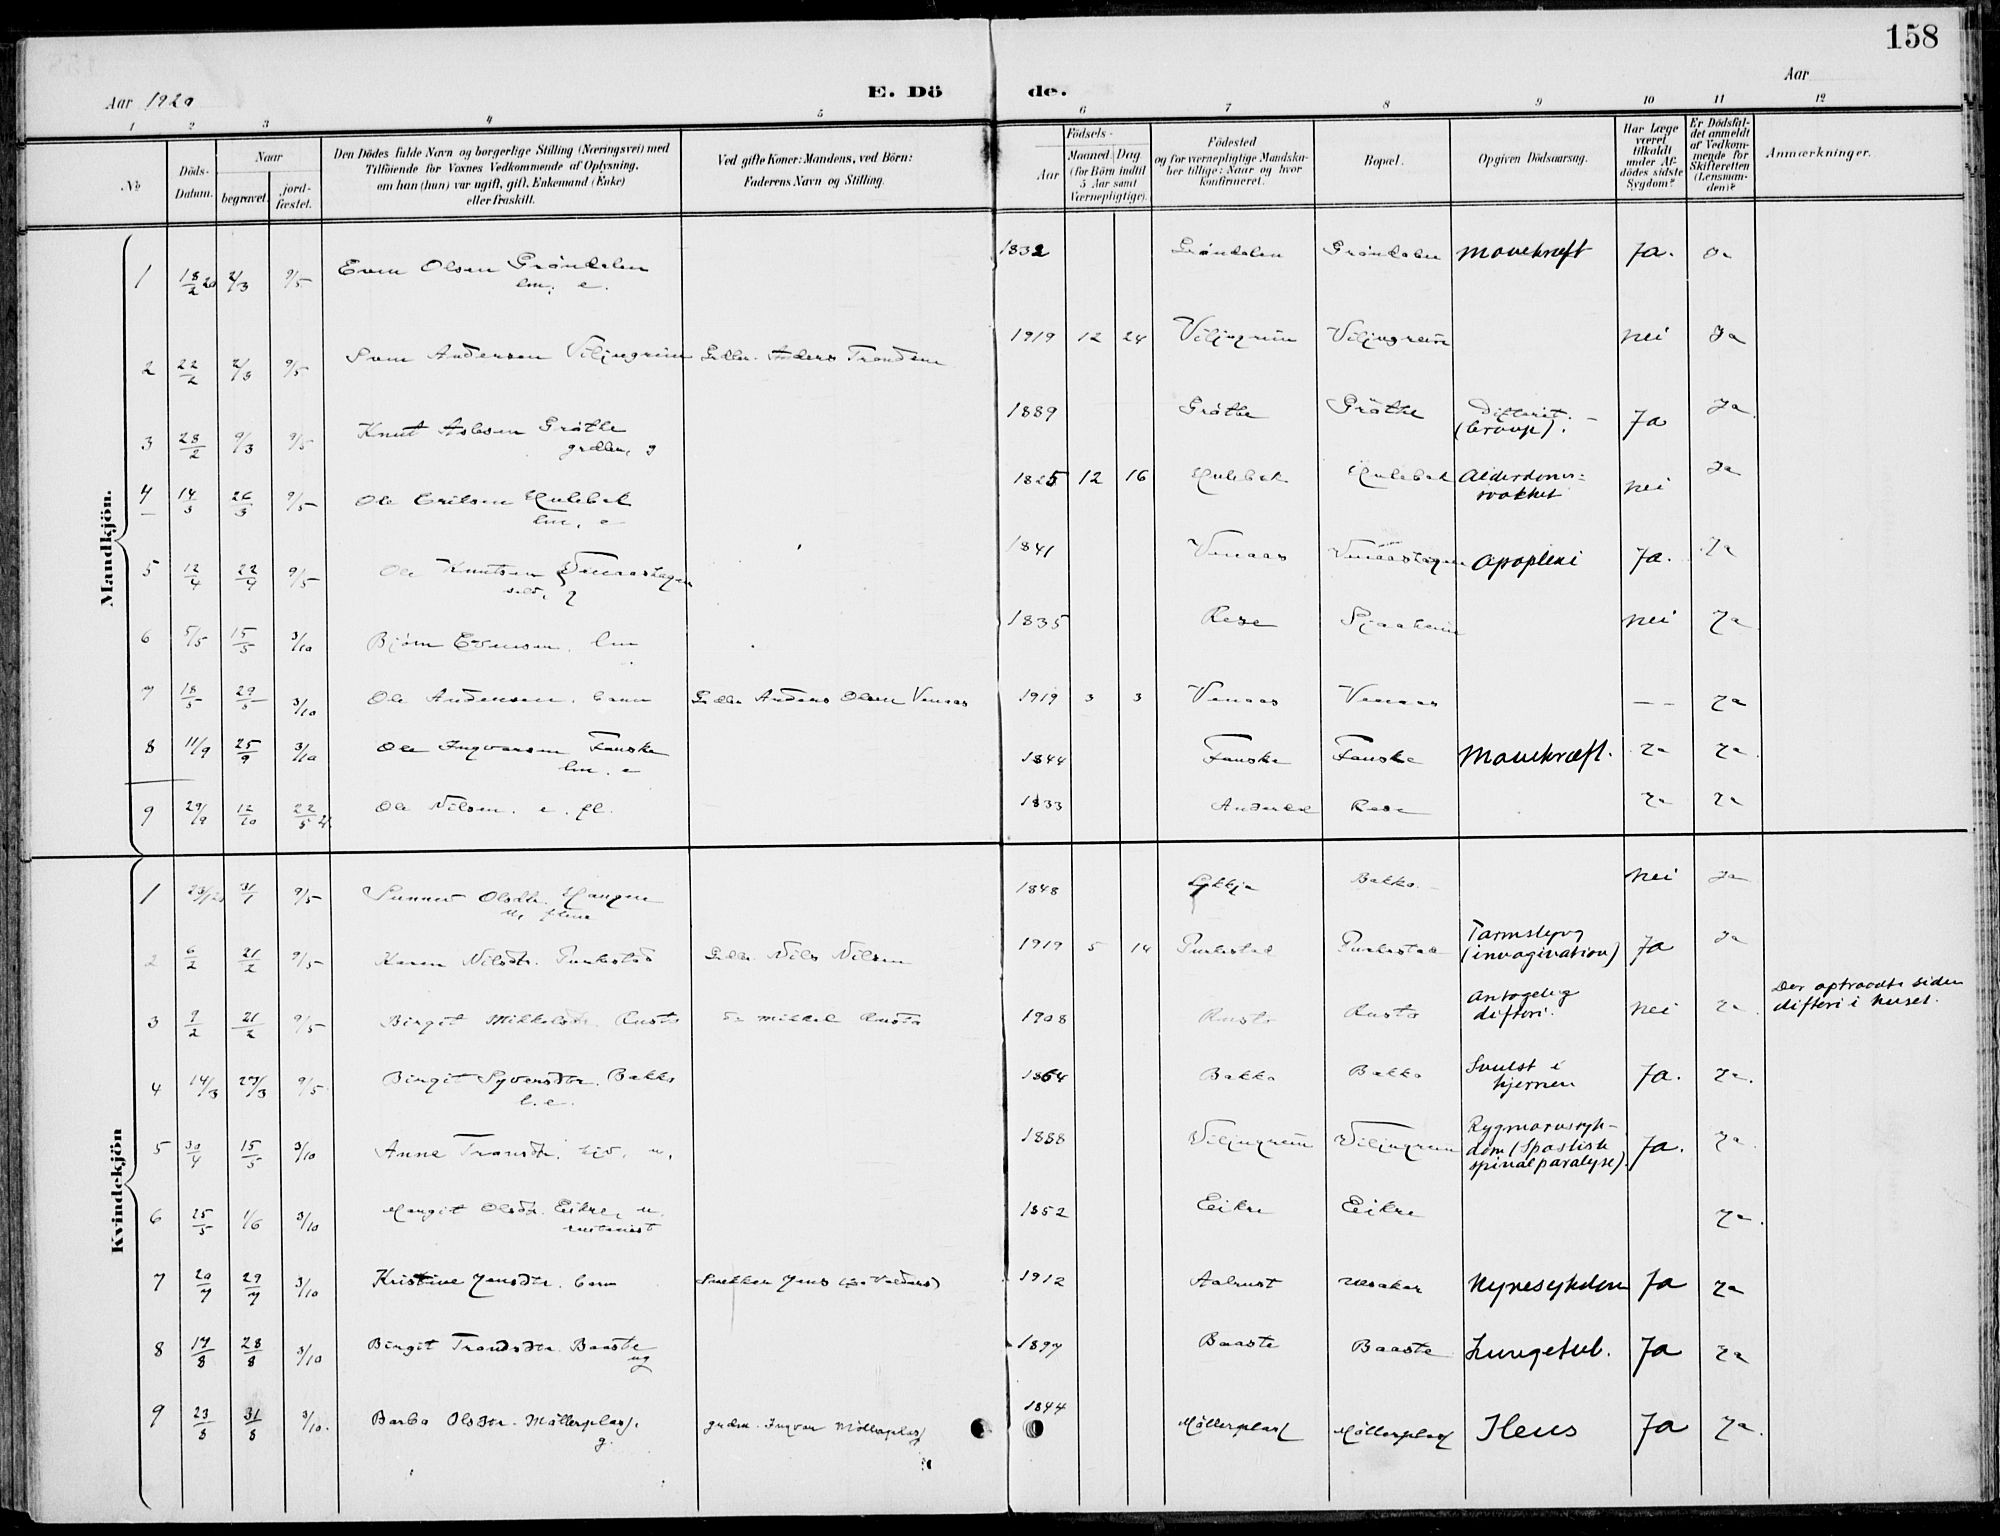 158
Aar 1920 E. Dö de. Aar
1 2 3 4 5 6 7 8 9 10 11 12
No
Döds-Datum.
Naar begravet. jordfæstet.
Den Dödes fulde Navn og borgerlige Stilling (Næringsvei) med
Tilföiende for Voxnes Vedkommende af Oplysning,
om han (hun) var ugift, gift, Enkemand (Enke)
eller fraskilt.
Ved gifte Koner: Mandens, ved Börn:
Faderens Navn og Stilling.
Födsels-
Aar Maaned Dag
(for Börn indtil
5 Aar samt
Værnepligtige).
Födested
og for værnepligtige Mandska-
ber tillige: Naar og hvor
konfirmeret.
Bopæl.
Opgiven Dödsaarsag.
Har Læge
været
tilkaldt
under Af-
dödes sidste
Sygdom?
Er Dödsfal-
det anmeldt
af Vedkom-
mende for
Skifteretten
(Lensman-
den)?
Anmærkninger.
Mandkjön.
1 18/2 20 2/3 9/5 Even Olsen Gröndalen 1832 Gröndalen Gröndalen Mavekræft Ja. Ja
lm, e.
2 22/2 2/3 9/5 Sven Andersen Viljugrein Gdbr. Anders Trondsen 1919 12 24 Viljugrein Viljugrein nei Ja
3 28/2 9/3 9/5 Knut Aslesen Gröthe 1889 Gröthe Gröthe Difterit. – Ja Ja
g (Croup).
4 14/3 26/3 9/5 Ole Eriksen Hulebak 1825 12 16 Hulebak Hulebak Alderdoms- nei Ja
lm, e svakhet
5 12/4 22/4 9/5 Ole Knutsen Venaashagen 1841 Venaas Apoplexi Ja. Ja
6 5/5 15/5 3/10 Björn Evensen. lm 1835 Rese nei Ja
7 18/5 29/5 3/10 Ole Andersen. barn Gdbr Anders Olsen Venaas 1919 3 3 Venaas Venaas – – Ja
8 11/9 25/9 3/10 Ole Ingvarsen Fauske 1844 Fauske Fauske Mavekræft. Ja Ja
lm. e
9 29/9 12/10 22/5 21. Ole Nilsen. e. fl. 1833 Rese Ja Ja
Kvindekjön
1 23/1 20 31/1 9/5 Sunnev Olsdtr. Haugen 1848 Lykkja Bakko nei Ja
2 6/2 21/2 9/5 Karen Nilsdtr. Purkestad Gdbr. Nils Nilsen 1919 5 14 Purkestad Purkestad Tarmslyng Ja Ja
(invagination)
3 9/2 21/2 9/5 Birgit Mikkelsdtr. Rusto do Mikkel Rusto 1908 Rusto Rusto Antagelig nei Ja Der optraadte siden
difteri. difteri i huset.
4 14/3 27/3 9/5 Birgit Syversdtr. Bakko 1864 Bakko Bakko Svulst i Ja. Ja.
l. e. hjernen
5 30/4 15/5 3/10 Anne Transdtr. u. 1888 Viljugrein Viljugrein Rygmarvssyk- Ja. Ja.
dom (Spastisk
spinalparalyse).
6 25/5 1/6 3/10 Margit Olsdtr. Eikre, u. 1852 Eikre Eikre Ja.
7 20/7 29/7 3/10 Kristine Jensdtr. barn Snekker Jens (fra Valdres) 1912 Aalrust Ulsaker Nyresykdom Ja Ja
8 17/8 28/8 3/10 Birgit Trondsdtr. Baaste 1897 Baaste Baaste Lungetub. Ja Ja
ug
9 23/8 31/8 3/10. Barbo Olsdtr. Möllerplas. Ingvar Möllerplas 1844 Möllerplas Möllerplas Ileus Ja Ja.
g.